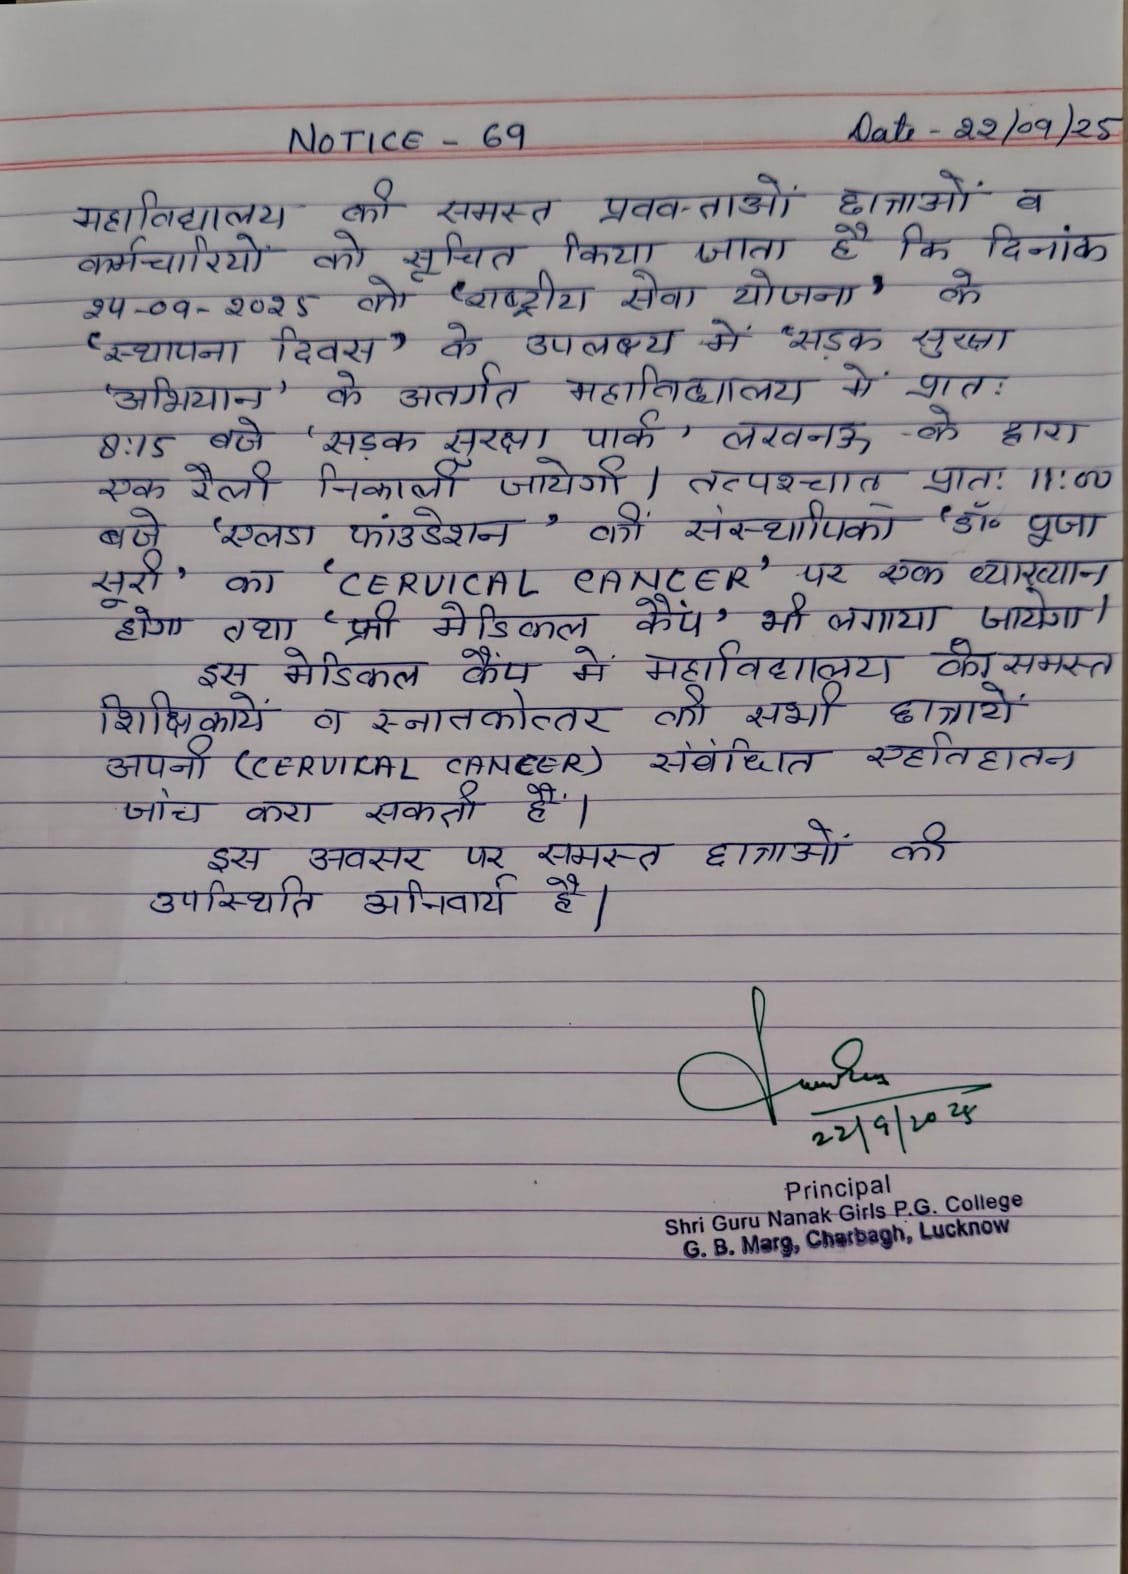 NOTICE - 69 Date - 22/09/25
महाविद्यालय की समस्त प्रवक्ताओं छात्राओं व
कर्मचारियों को सूचित किया जाता है कि दिनांक
24-09-2025 को 'राष्ट्रीय सेवा योजना' के
'स्थापना दिवस' के उपलक्ष्य में 'सड़क सुरक्षा
'अभियान' के अतर्गत महाविद्यालय में प्रातः
8:15 बजे 'सड़क सुरक्षा पार्क' लखनऊ के द्वारा
एक रैली निकाली जायेगी। तत्पश्चात प्रातः 11:00
बजे 'एलडा फांउडेशन' कीं संस्थापिका 'डॉ० पूजा
सूरी' का 'CERVICAL CANCER' पर एक व्याख्यान
होगा तथा 'फ्री मेडिकल कैंप' भी लगाया जायेगा।
इस मेडिकल कैंप में महाविद्यालय की समस्त
शिक्षिकायें व स्नातकोत्तर की सभी छात्रायें
अपनी (CERVICAL CANCER) संबंधित एहतिहातन
जांच करा सकती हैं।
इस अवसर पर समस्त छात्राओं की
उपस्थिति अनिवार्य है।
22/9/2025
Principal
Shri Guru Nanak Girls P.G. College
G. B. Marg, Charbagh, Lucknow